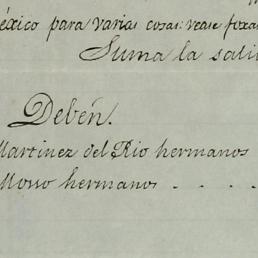 éxico para varias cosas: vease foxa
Suma la sali
Debén.
Martinez del Rio hermanos
Mosso hermanos . . . .